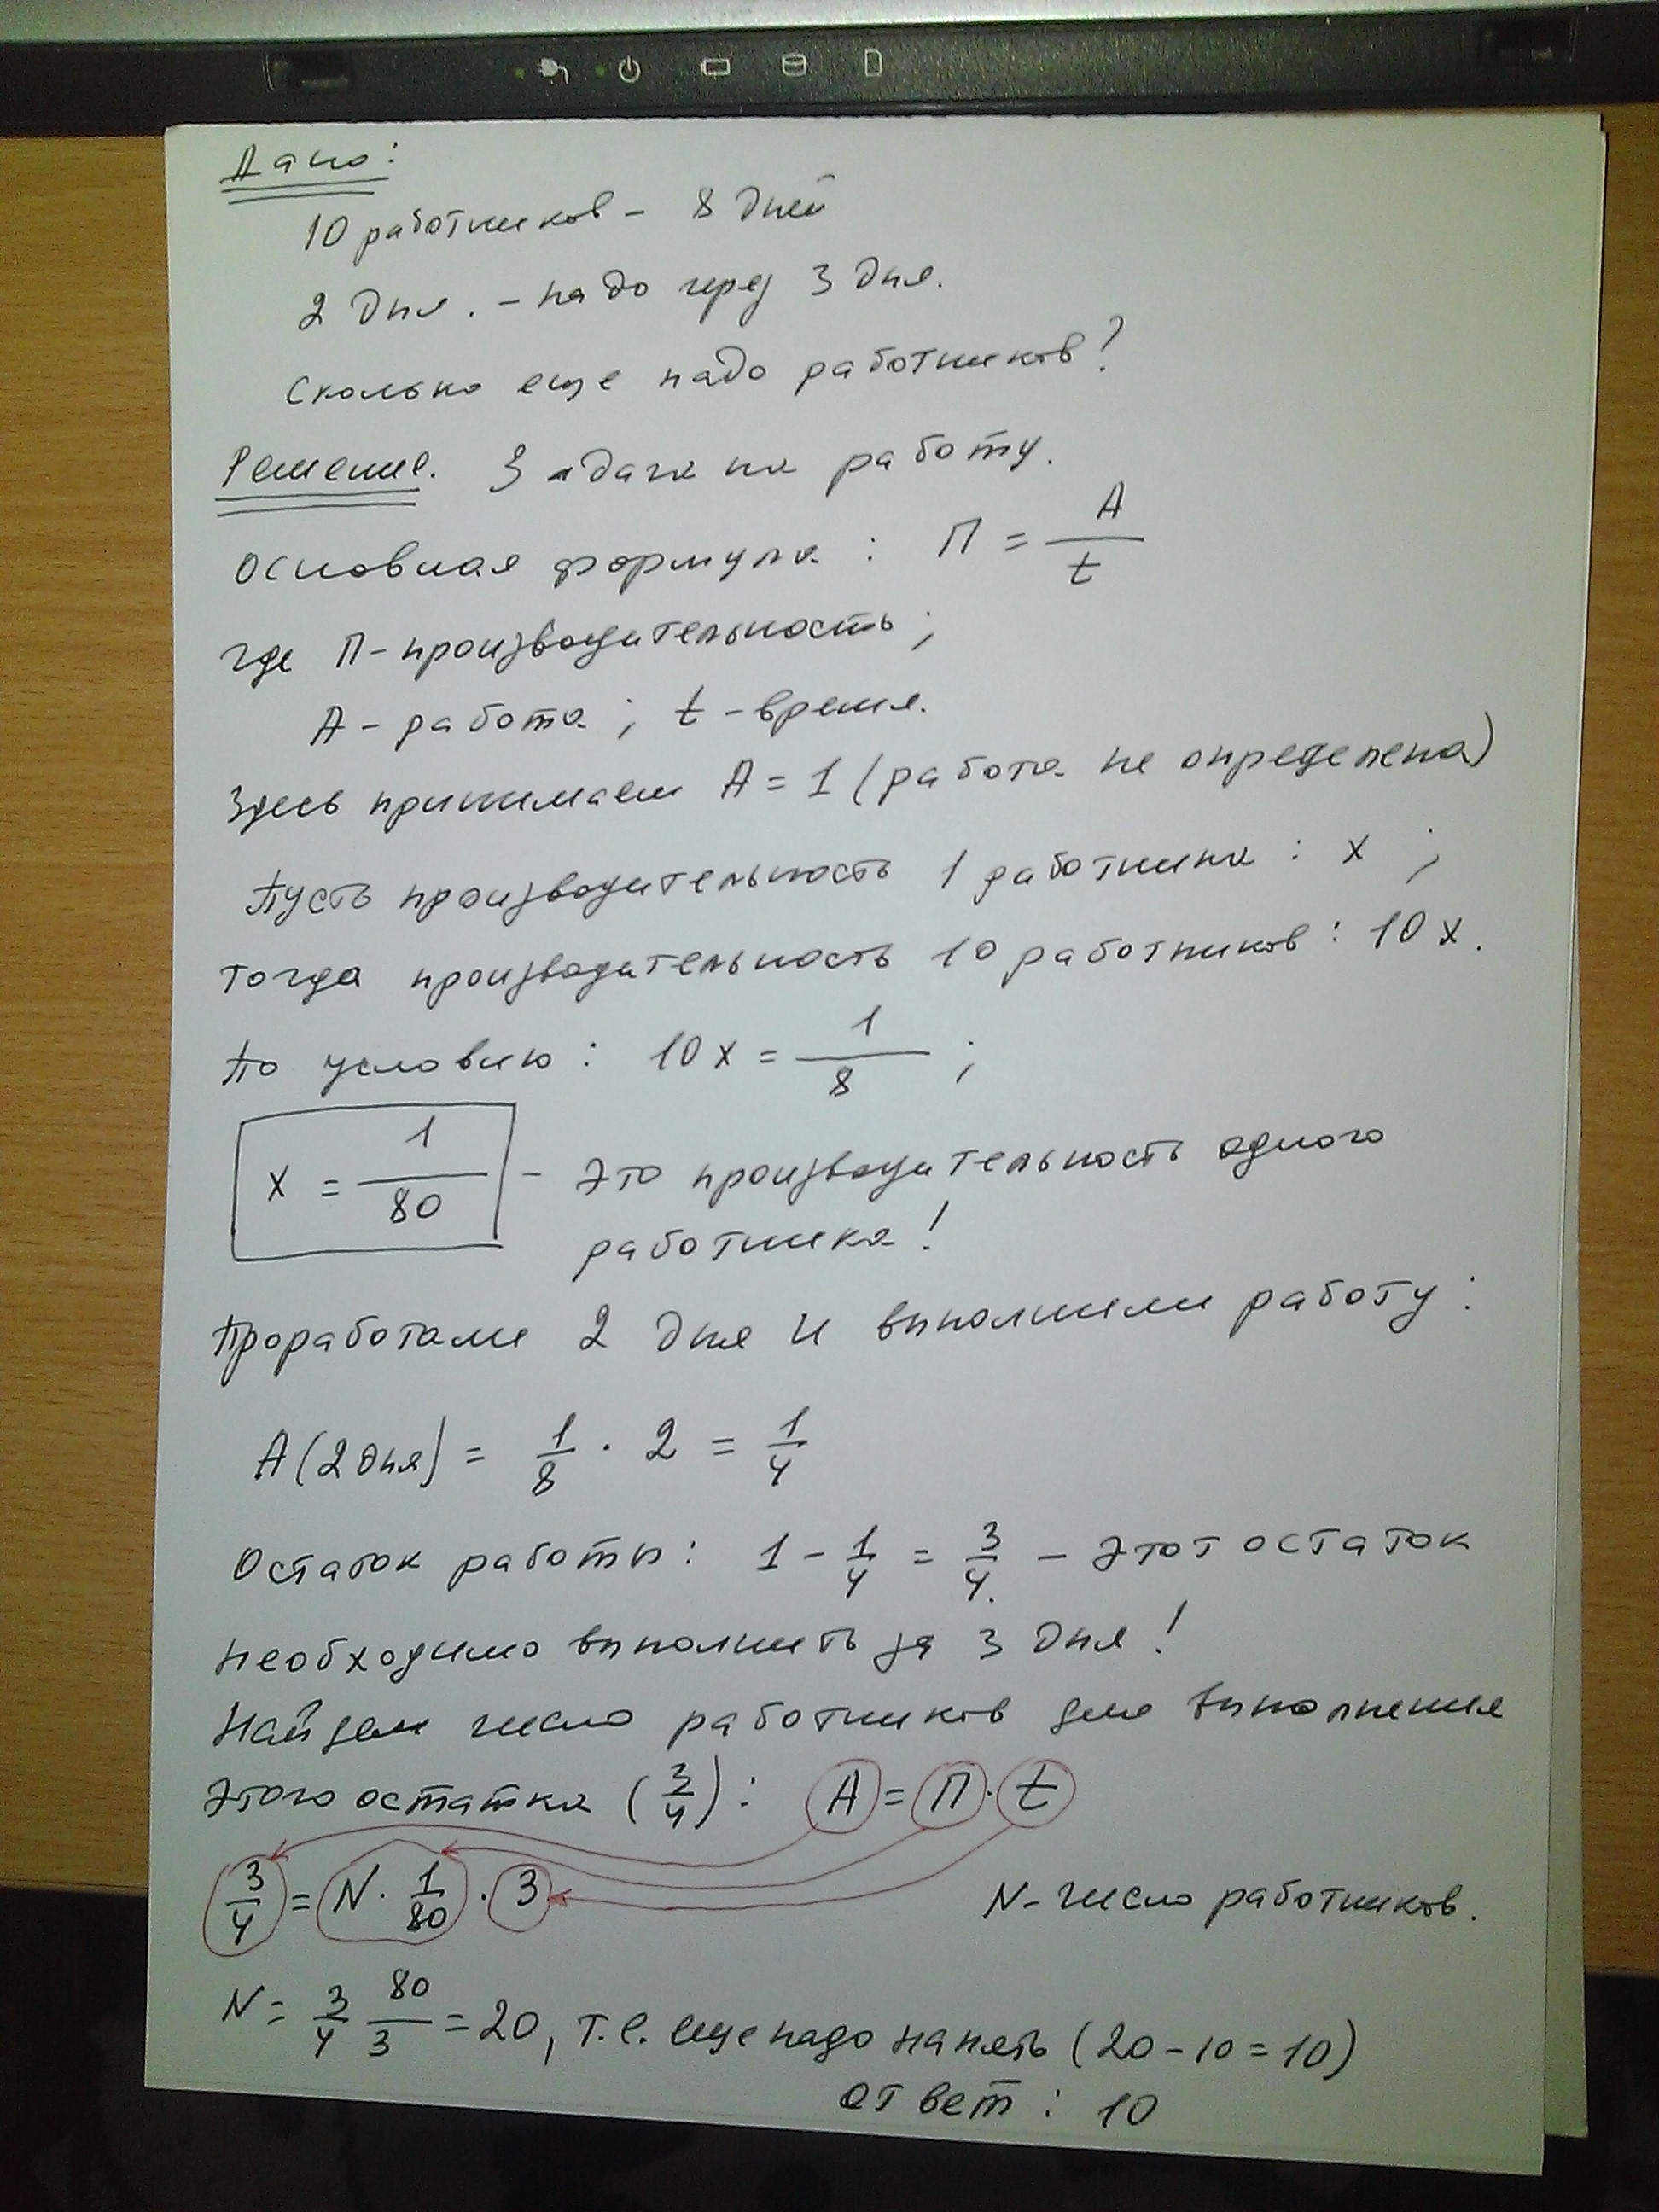 Дано:
10 работников - 8 дней
2 дня. - надо через 3 дня.
Сколько еще надо работников?
Решение. Задача на работу.
Основная формула: П = A/t
где П - производительность;
А - работа; t - время.
Здесь принимаем А = 1 (работа не определена)
Пусть производительность 1 работника: x;
Тогда производительность 10 работников: 10x.
По условию: 10x = 1/8;
x = 1/80 - это производительность одного
работника!
Проработали 2 дня и выполнили работу:
А(2 дня) = 1/8 · 2 = 1/4
Остаток работы: 1 - 1/4 = 3/4. - этот остаток
необходимо выполнить за 3 дня!
Найдем число работников для выполнения
этого остатка (3/4): А = П · t
3/4 = N · 1/80 · 3 N - число работников.
N = 3/4 80/3 = 20, т.е. еще надо нанять (20 - 10 = 10)
Ответ: 10